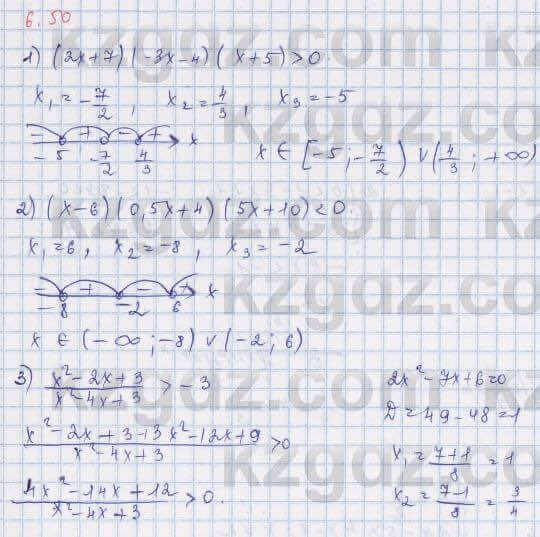 6.50
1) (2x+7)(-3x-4)(x+5)>0
x₁=-7/2, x₂=4/3, x₃=-5
- + - + x
-5 -7/2 4/3 x ∈ [-5;-7/2) ∨ (4/3; +∞)
2) (x-6)(0,5x+4)(5x+10)<0.
x₁=6, x₂=-8, x₃=-2
- + - + x
-8 -2 6
x ∈ (-∞;-8) ∨ (-2; 6)
3) (x²-2x+3)/(x²-4x+3) > -3
(x²-2x+3+3x²-12x+9)/(x²-4x+3) >0
(4x²-14x+12)/(x²-4x+3) >0.
2x²-7x+6=0
D=49-48=1
x₁=(7+1)/8=1
x₂=(7-1)/8=3/4
kzgdz.com